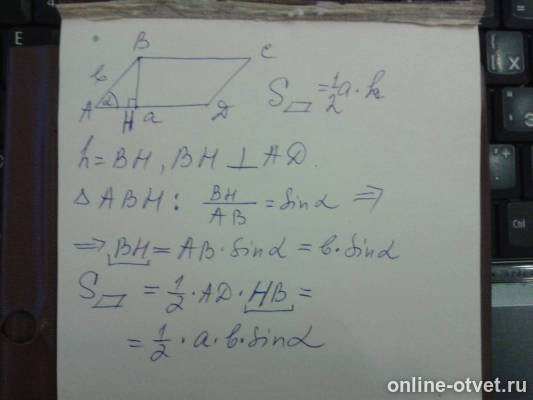 B C
b
A α H a D
S▱ = 1/2 a · h
h = BH, BH ⊥ AD.
Δ ABH: BH/AB = sinα ⇒
⇒ BH = AB · sinα = b · sinα
S▱ = 1/2 · AD · HB =
= 1/2 · a · b · sinα
online-otvet.ru